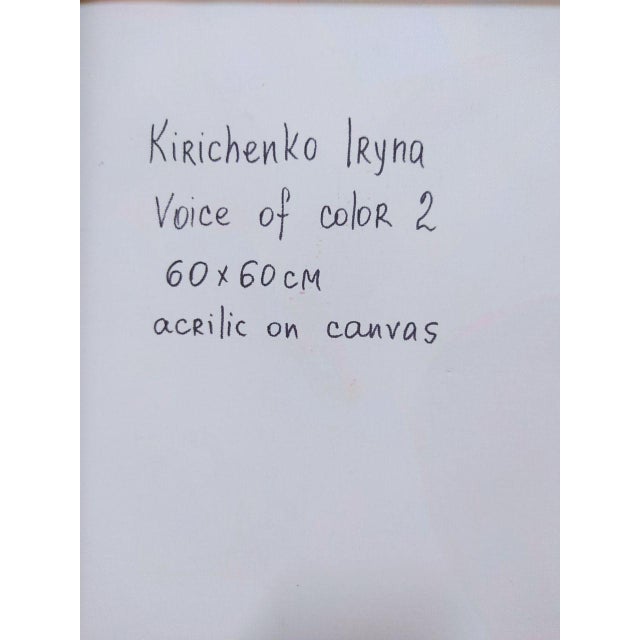 Kirichenko Iryna
Voice of color 2
60x60cm
acrilic on canvas